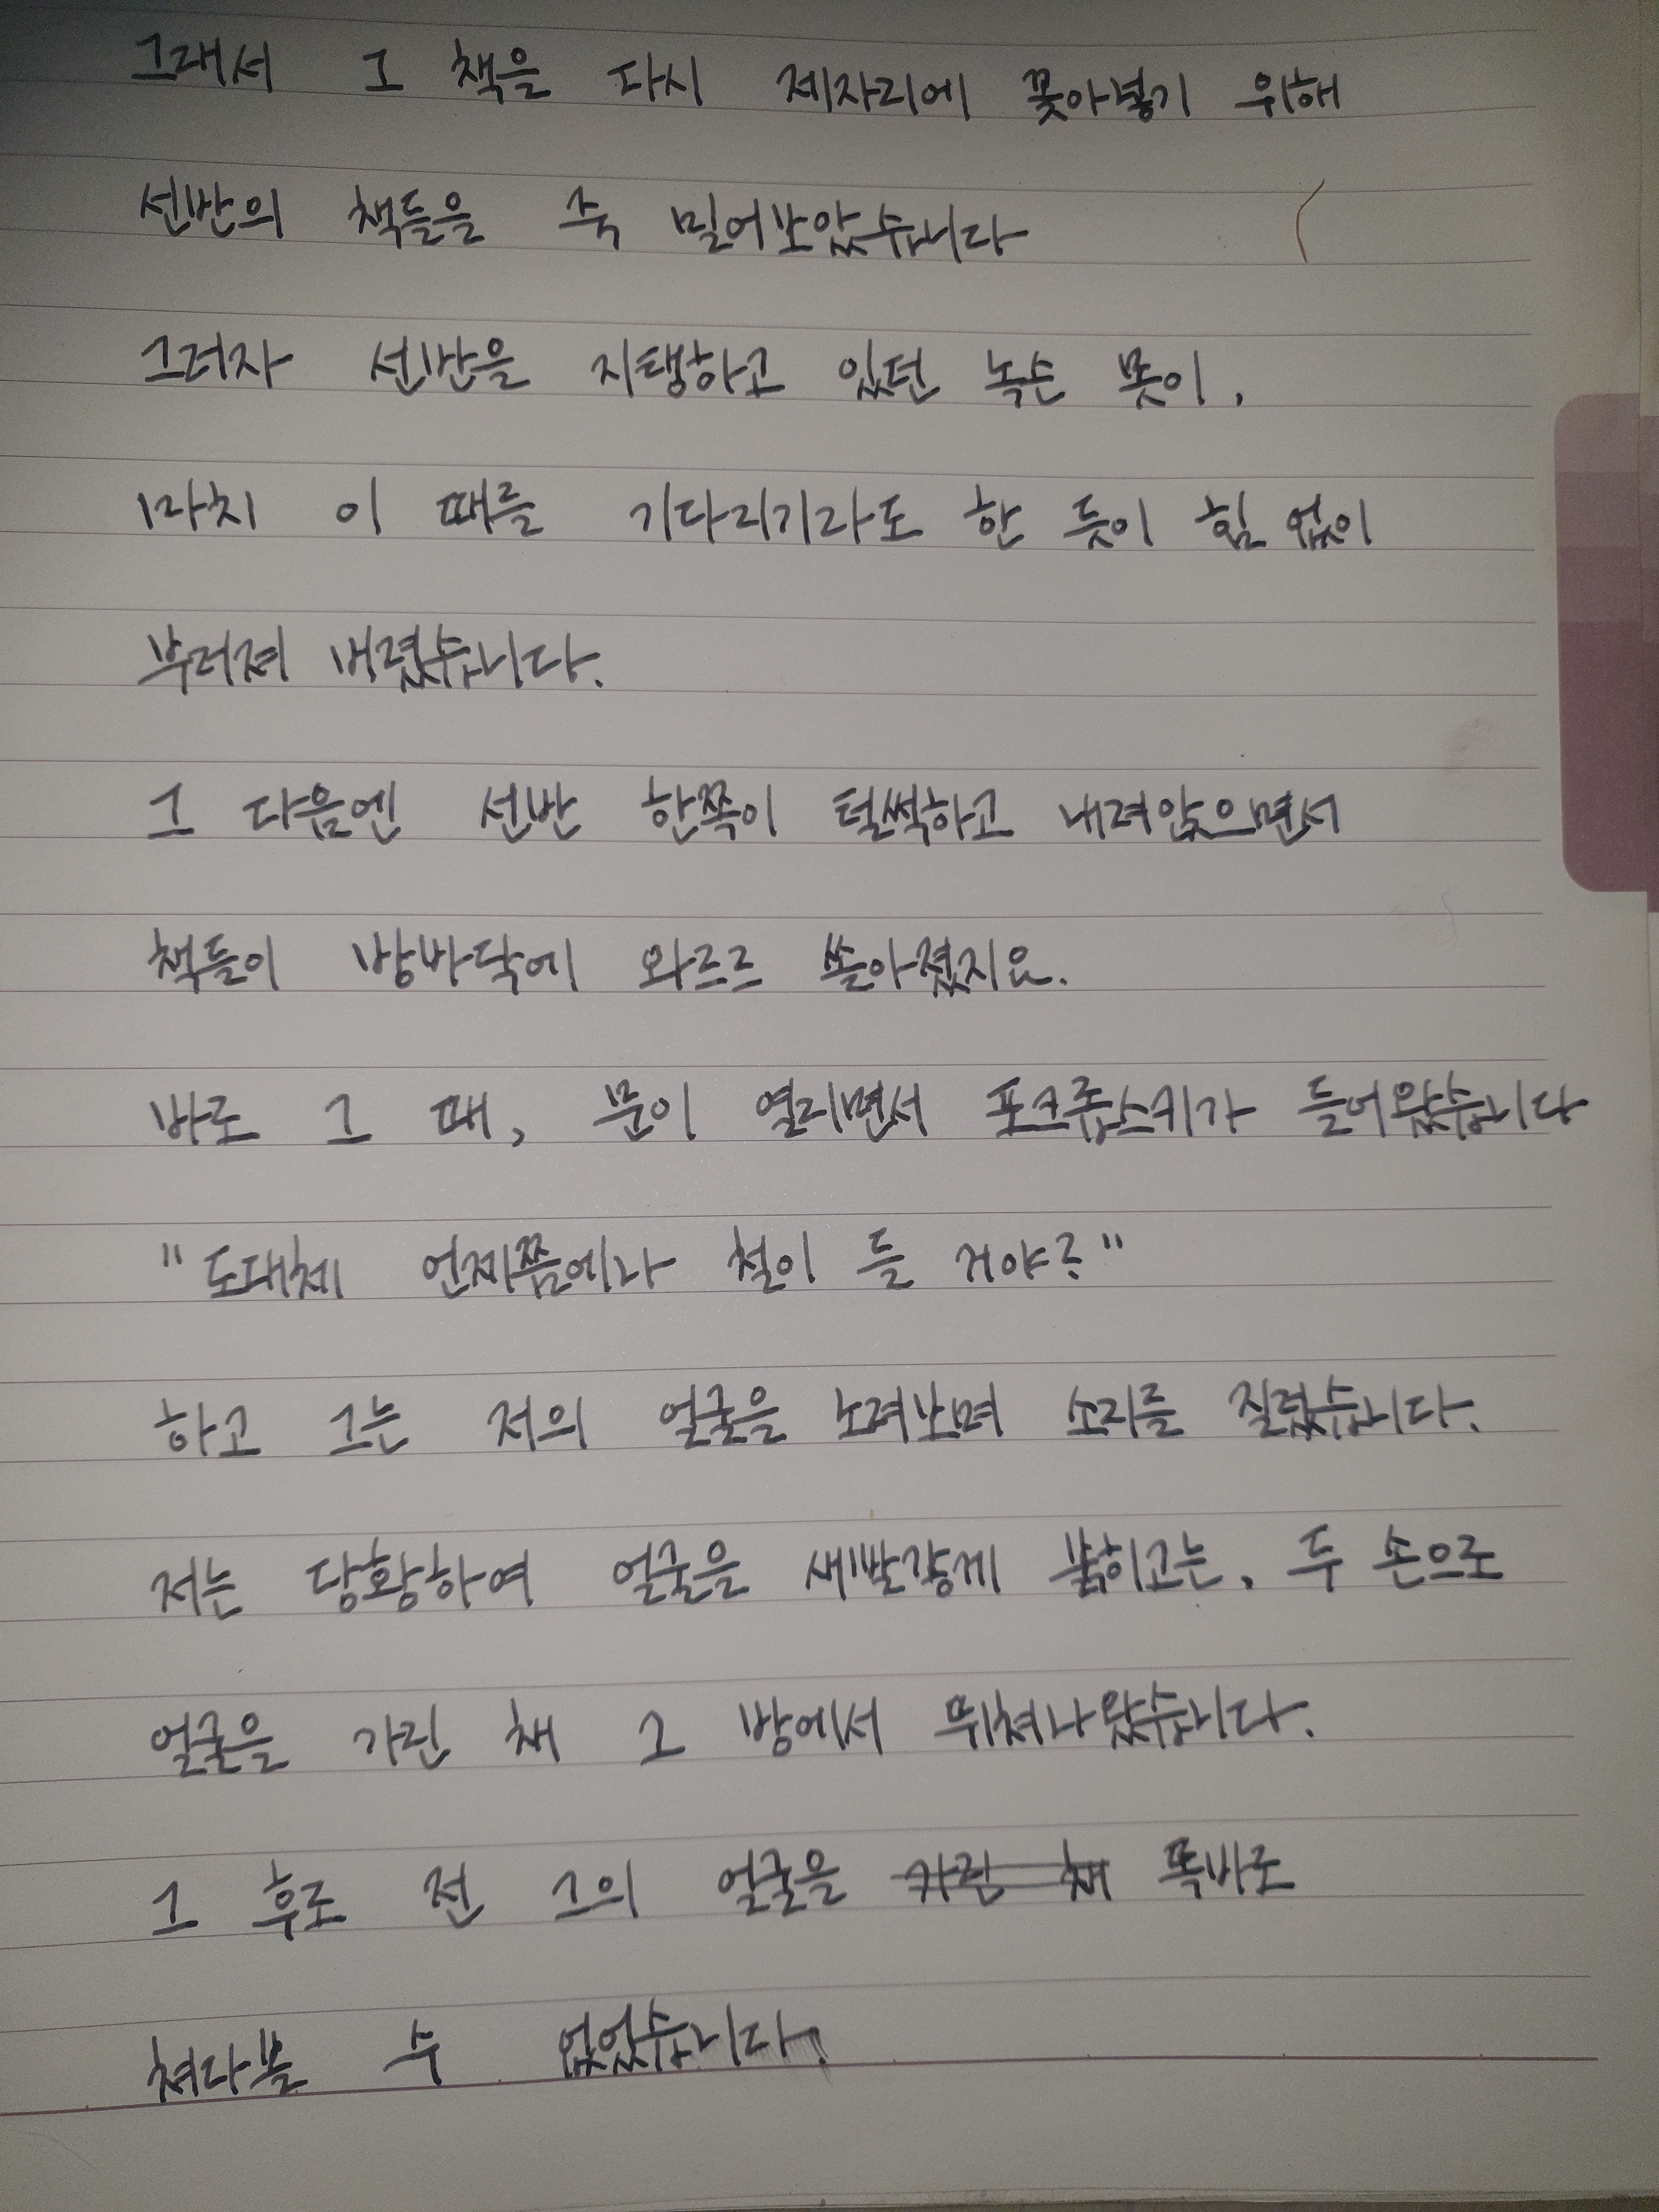 그래서 그 책을 다시 제자리에 꽂아넣기 위해
선반의 책들을 죽 밀어보았습니다
그러자 선반을 지탱하고 있던 녹슨 못이,
마치 이 때를 기다리기라도 한 듯이 힘 없이
부러져 버렸습니다.
그 다음엔 선반 한쪽이 털썩하고 내려앉으면서
책들이 방바닥에 와르르 쏟아졌지요.
바로 그 때, 문이 열리면서 포크롭스키가 들어왔습니다
"도대체 언제쯤에나 철이 들 거야?"
하고 그는 저의 얼굴을 노려보며 소리를 질렀습니다.
저는 당황하여 얼굴을 새빨갛게 붉히고는, 두 손으로
얼굴을 가린 채 그 방에서 뛰쳐나왔습니다.
그 후로 전 그의 얼굴을 가린 채 똑바로
쳐다볼 수 없었습니다.